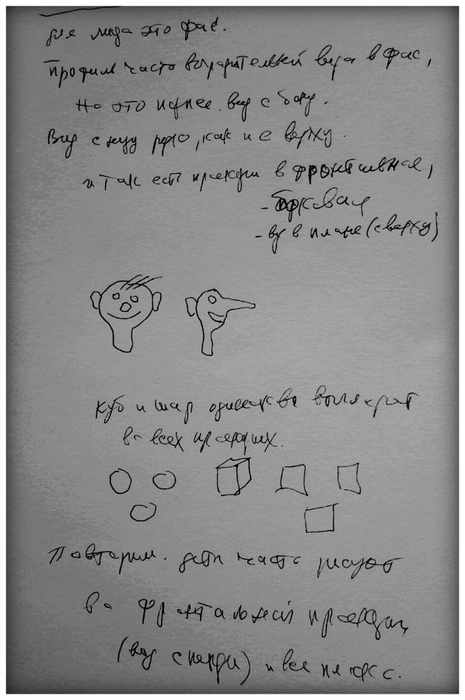 для лица это фас.
профиль часто выразительней вида в фас,
но это вид с боку.
Вид с низу редко, как и с верху.
итак есть проекции фронтальная,
- боковая
- вид в плане (сверху)
куб и шар одинаково выглядят
во всех проекциях.
Повторим. дети часто рисуют
во фронтальной проекции
(вид спереди) и все плоско.